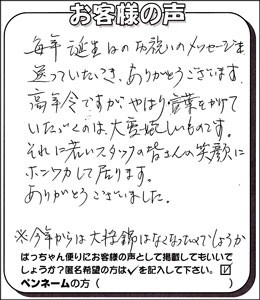 お客様の声
毎年誕生日のお祝いのメッセージを
送っていただき、ありがとうございます。
高年令ですが、やはり言葉をかけて
いただくのは、大変嬉しいものです。
それに若いスタッフの皆さんの笑顔に
ホンワカして居ります。
ありがとうございました。
※今年からは大抽籤はなくなったのでしょうか
ばっちゃん便りにお客様の声として掲載してもいいで
しょうか?匿名希望の方は✓を記入して下さい。☑
ペンネームの方( )